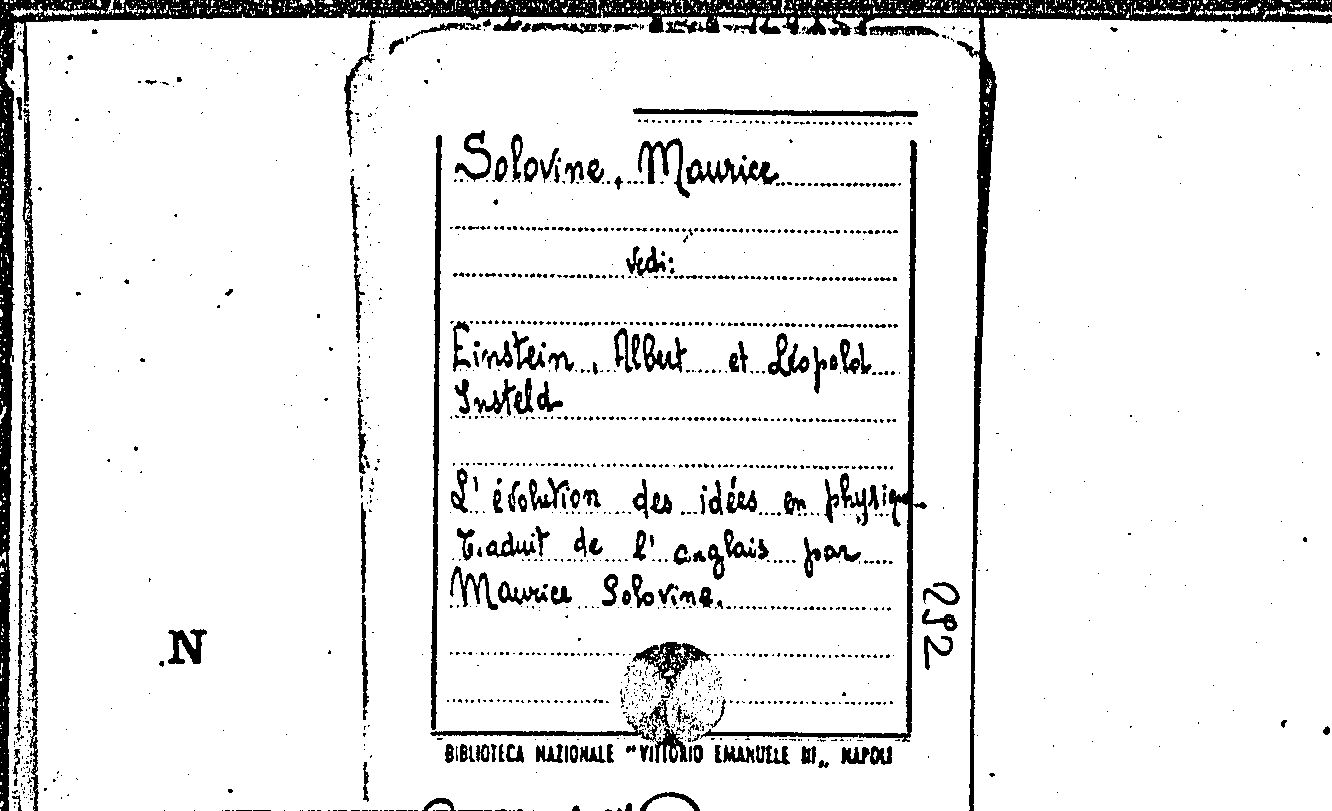 Solovine, Maurice
vedi:
Einstein, Albert et Léopold
Insfeld
L'évolution des idées en physique.
Traduit de l'anglais par
Maurice Solovine.
292
N
BIBLIOTECA NAZIONALE "VITTORIO EMANUELE III„ NAPOLI